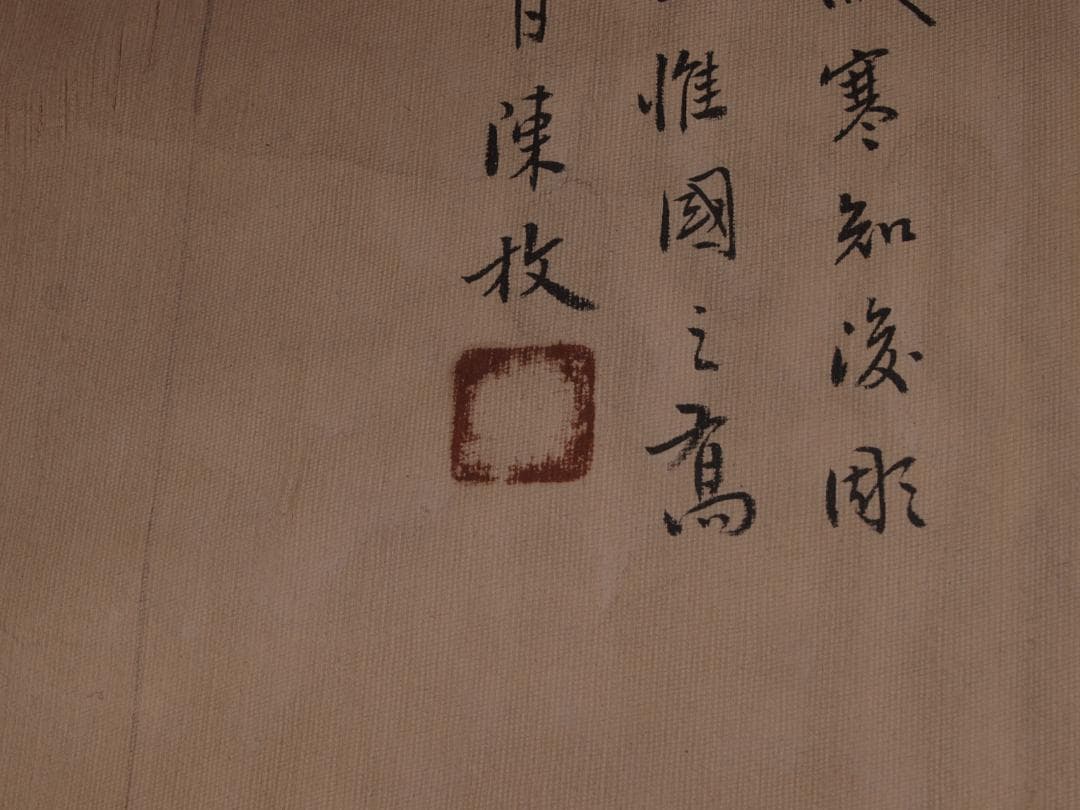 寒知後彫
惟國之喬
陳枚